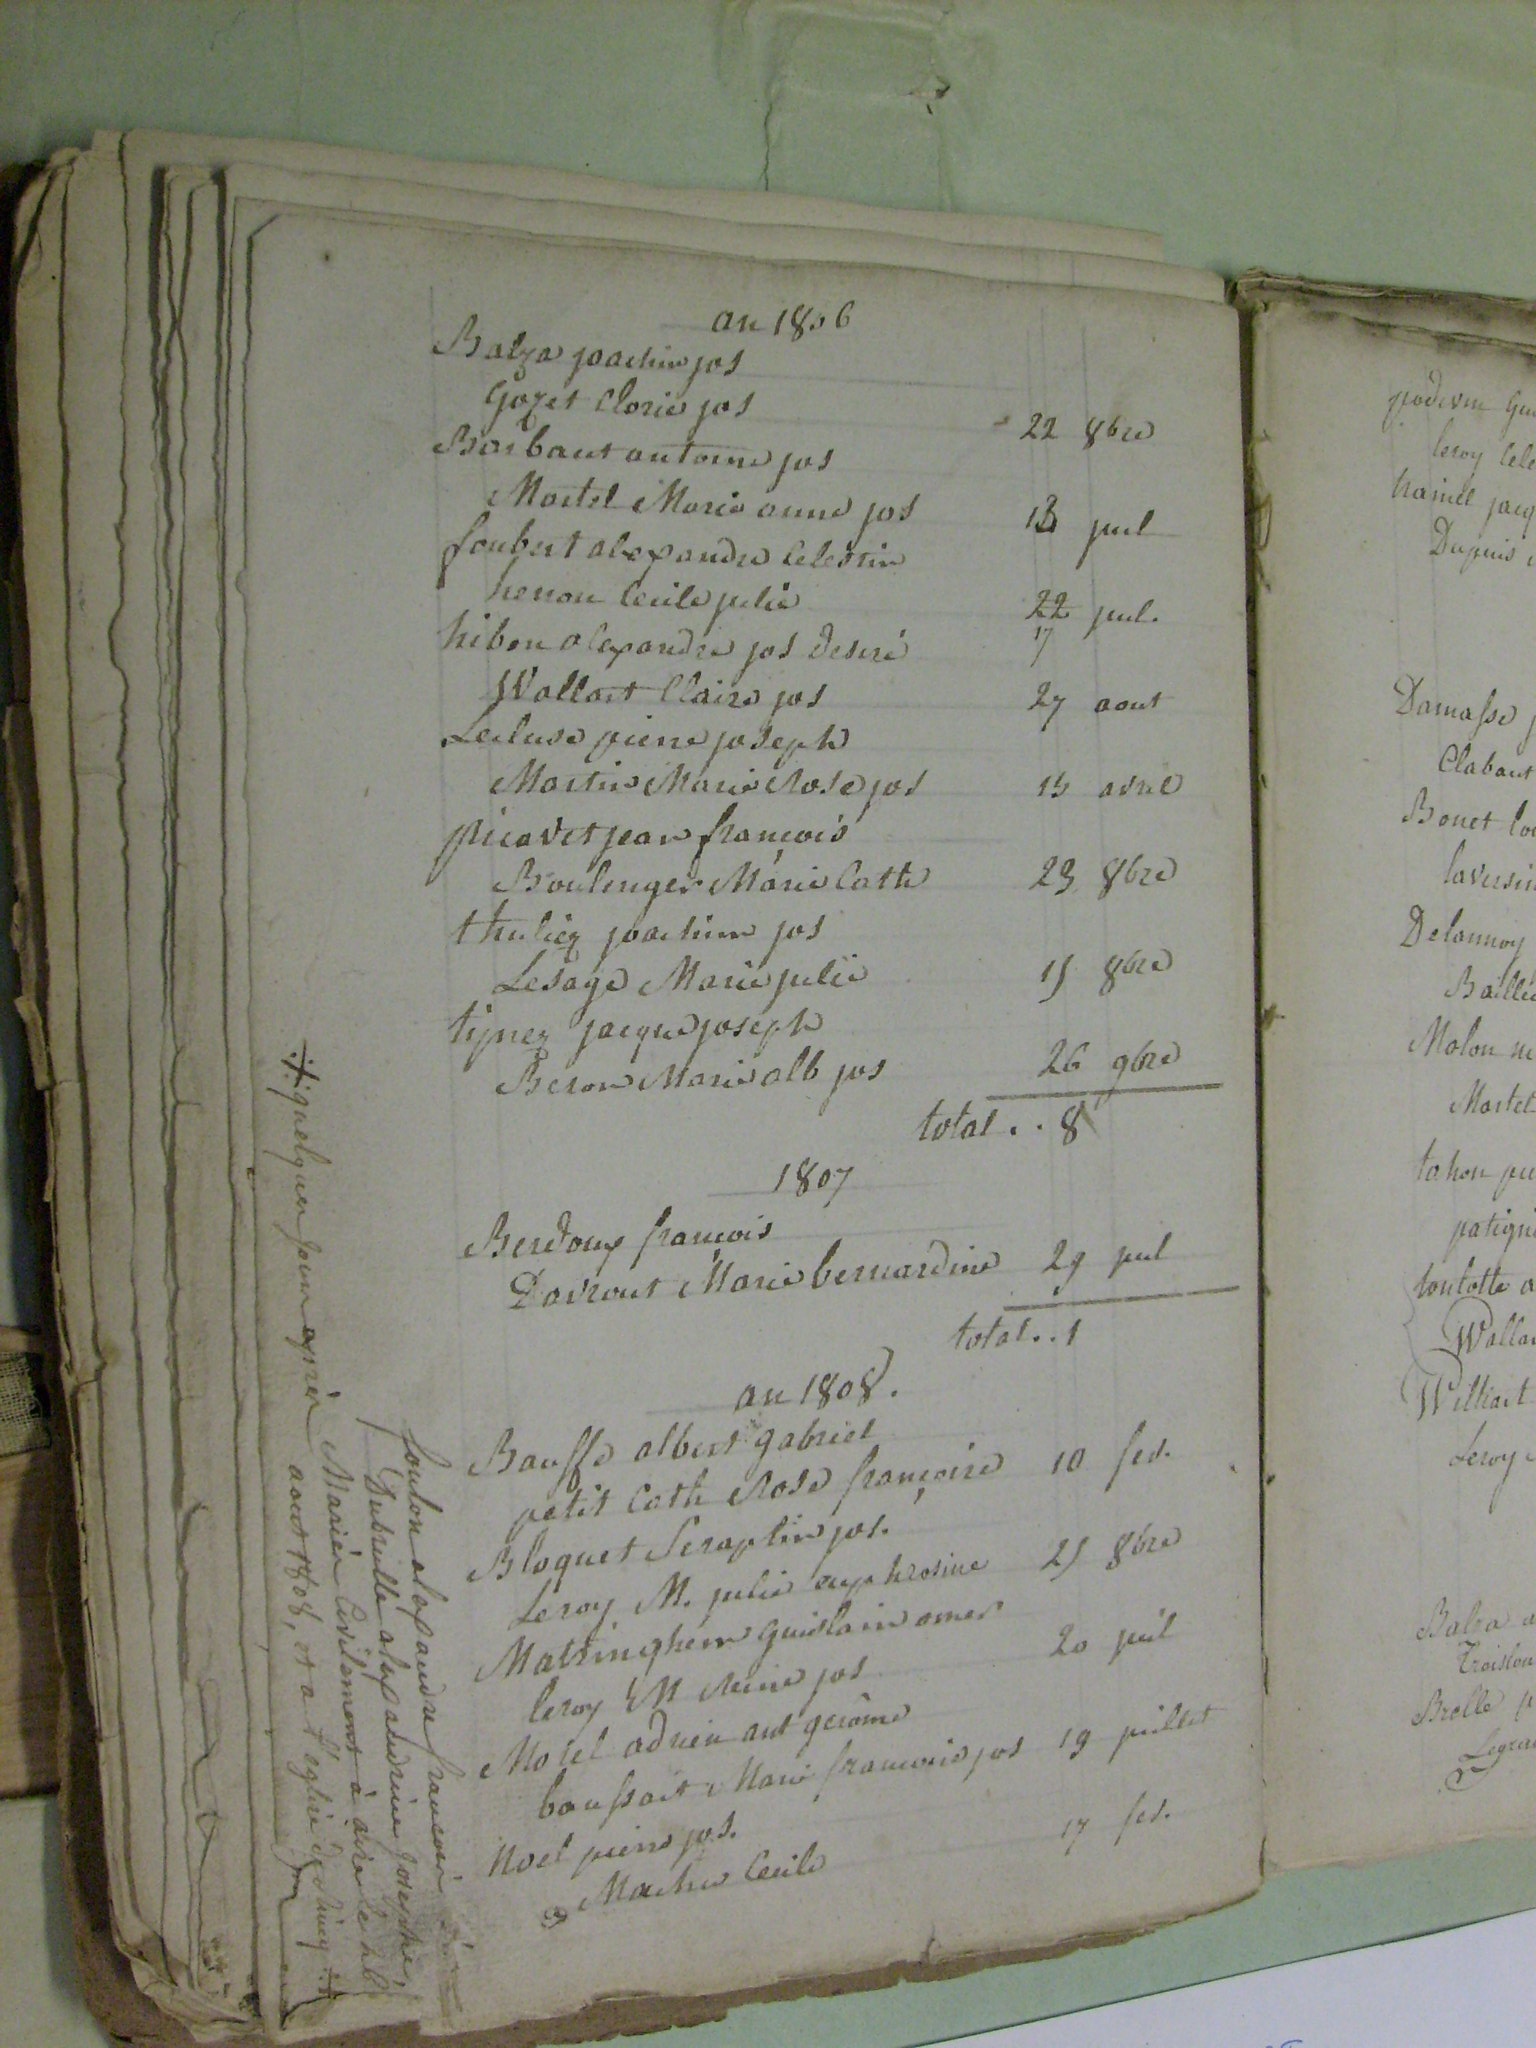 an 1806
Balza joachim jos
Gozet Clorie jos 22 8bre
Barbaut antoine jos
Martel Marie anne jos 13 juil
foubert alexandre Celestin
henon Cecile julie 22 juil.
17
hibon alexandre jos desiré
Wallart Claire jos 27 aout
Lecluse pierre joseph
Martin Marie Rose jos 15 avril
picavet jean françois
Boulenger Marie Cath 23 8bre
thuliez joachim jos
Lesage Marie julie 15 8bre
tijnez jacque joseph
Beron Marie alb jos 26 9bre
total . . 8
1807
Berdoux françois
Davrout Marie bernardine 29 juil
total . . 1
an 1808.
Bauffe albert gabriel
petit Cath Rose françoise 10 fev.
Bloquet Seraphin jos.
Leroy M. julie euphrosine 25 8bre
Matringhem guislain omer
leroy M Reine jos 20 juil
Morel adrien ant gerôme
boussart Marie françoise jos 19 juillet
Noel pierre jos.
Machu Cecile 17 fev.
foulon alexandre francois
Dubrulle alexandrine Josephe,
Mariés Civilement à aire le
aout 1808, et a l'eglise
quelques jours après
leroy
Dupuis
Damasse
Clabaut
Bonet
Delannoy
Malon
Martel
tahon
toulotte
Wallar
Leroy
Balza
Brelle